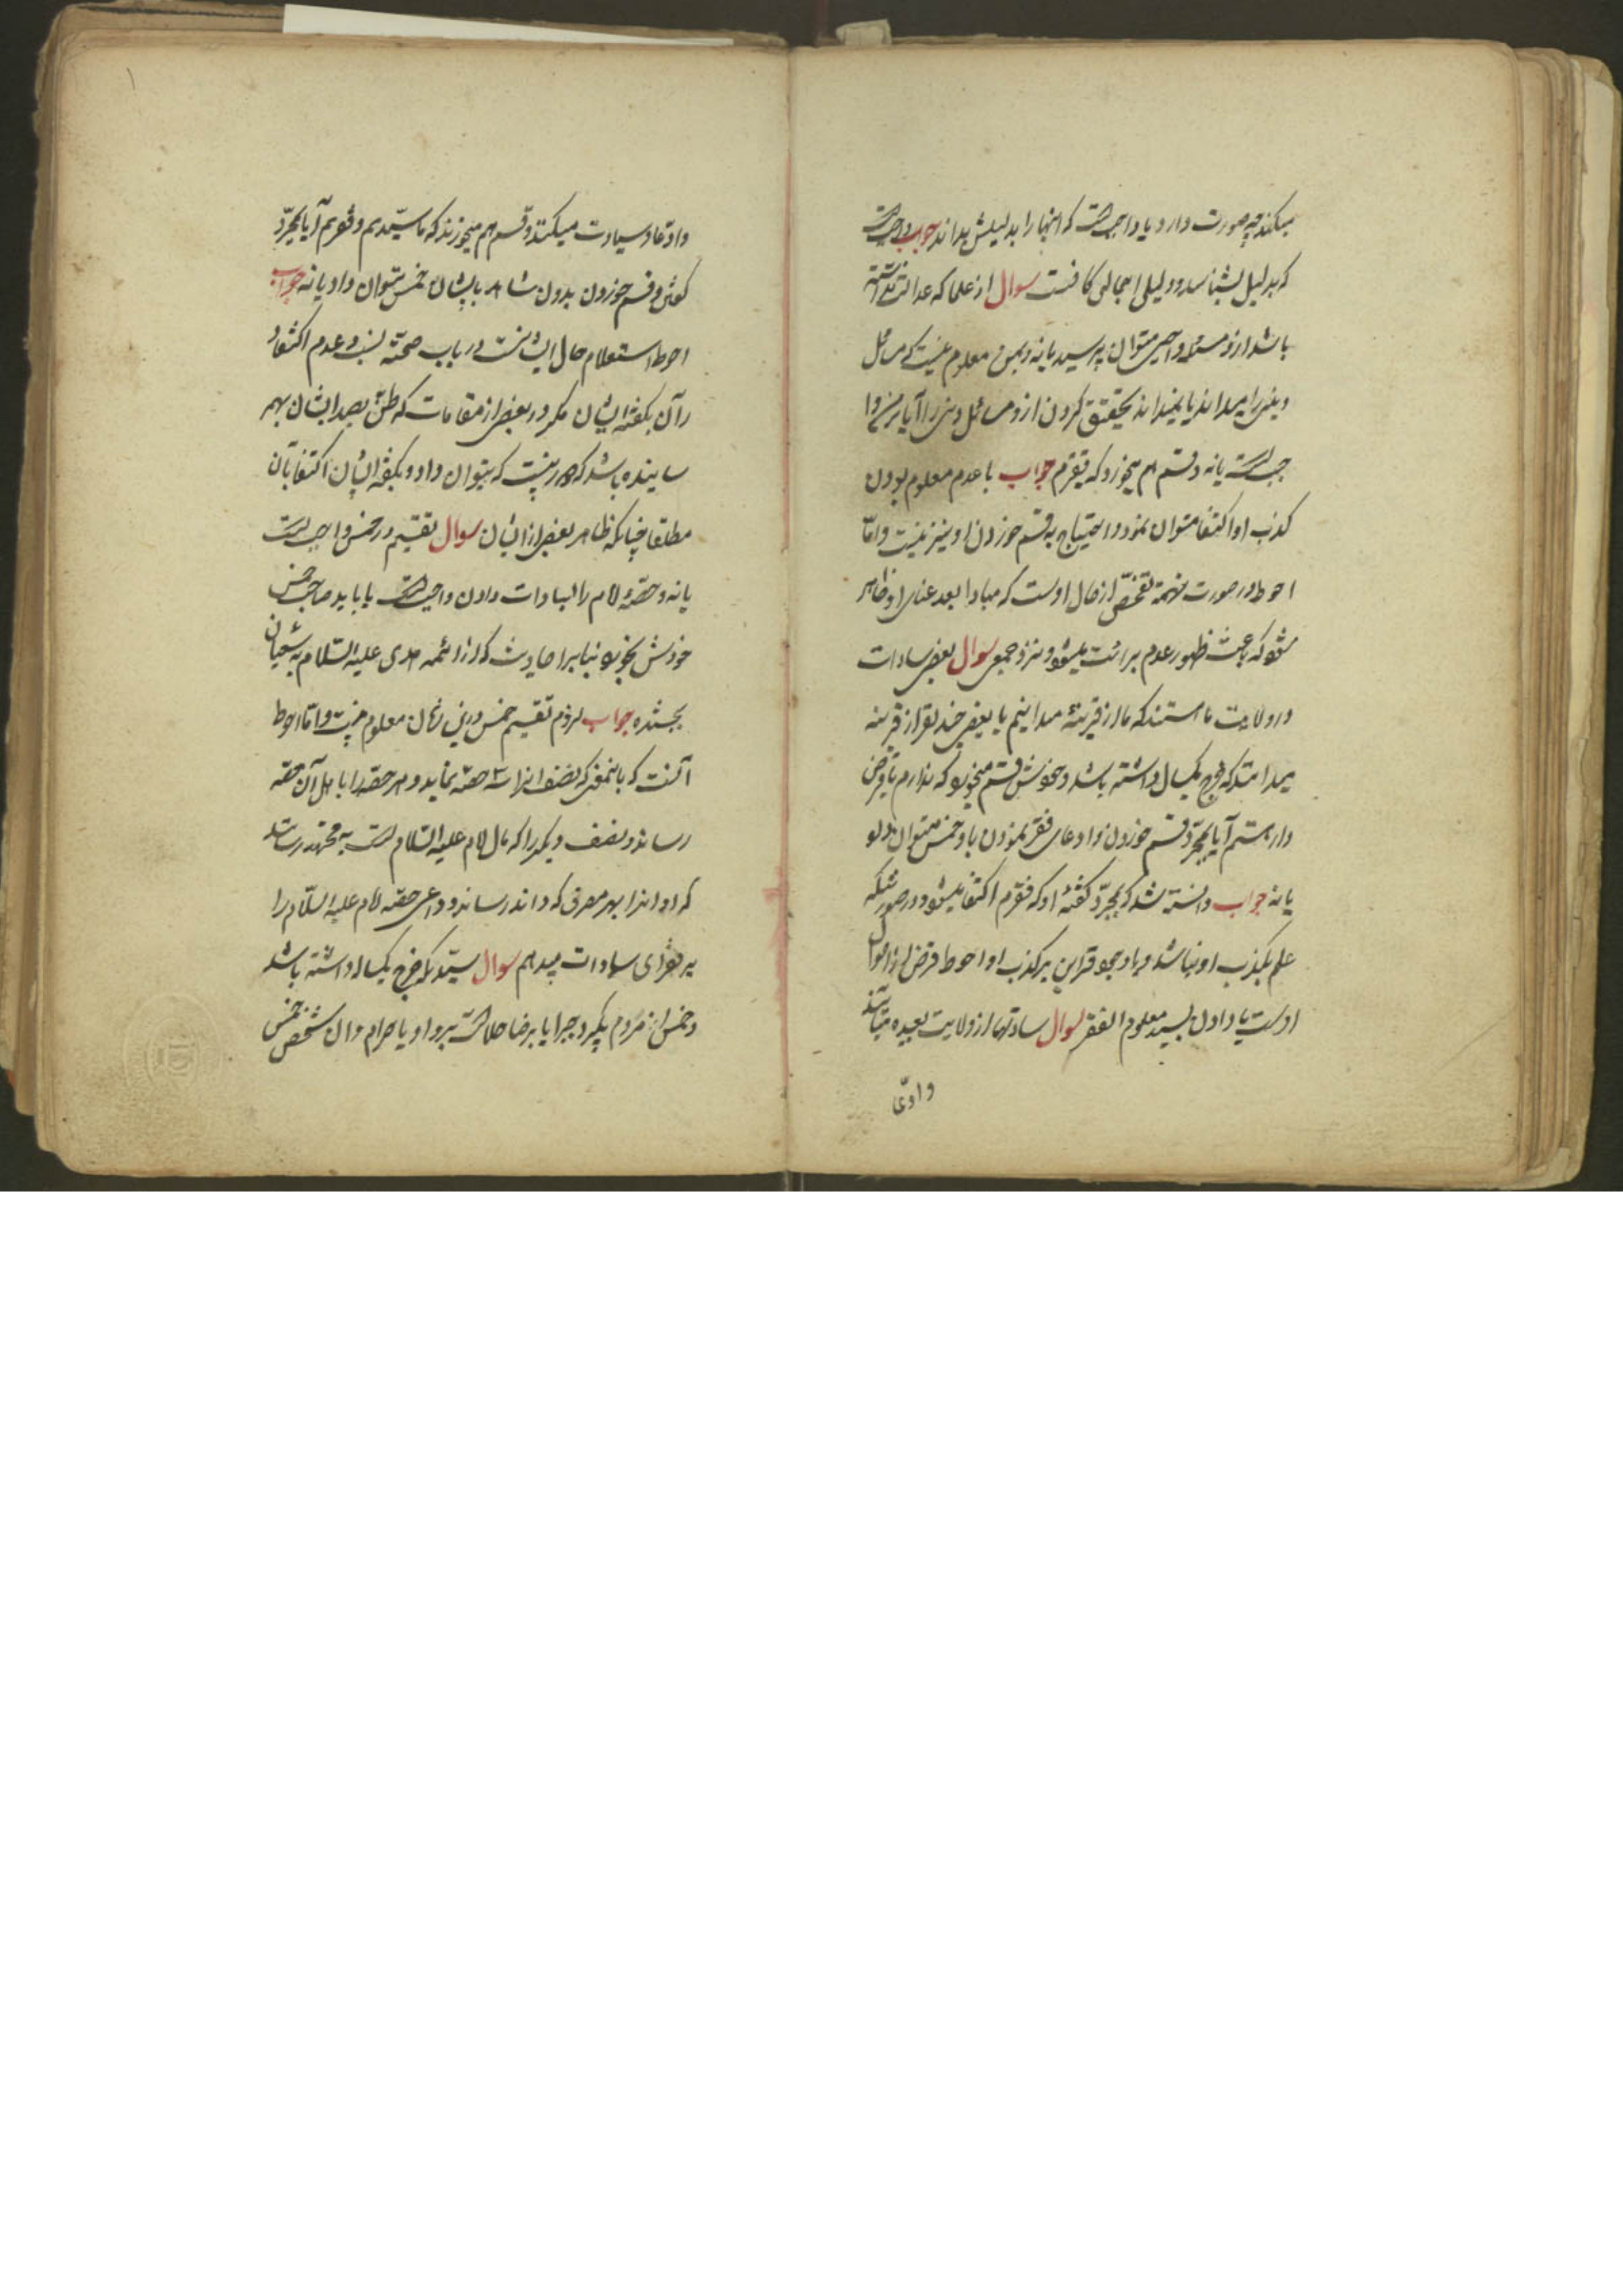 میکنند چه صورت دارد یا واجبست که اینها را بدلیلش بداند جواب واجبست
که بدلیل بشناسد و دلیل اجمالی کافیست سوال از علما که عدالت نداشته
باشد از او مسئله واجبی میتوان پرسید یا نه و بمن معلوم نیست که مسائل
دینی را میداند یا نمیداند تحقیق کردن از او مسائل دینی را آیا بر من وا
جبست یا نه و قسم هم میخورد که فقیرم جواب با عدم معلوم بودن
کذب او اکتفا میتوان نمود و احتیاج به قسم خوردن او نیز نیست و امّا
احوط در صورت تهمة تفحّص از حال اوست که مبادا بعد غنای او ظاهر
شود که باعث ظهور عدم برائت میشود نزد جمعی سوال بعضی سادات
در ولایت ما هستند که ما از قرینه میدانیم یا بعضی چند نفر از قرینه
میدانند که خرج یکسال داشته باشد و خودش قسم میخورد که ندارم یا قرض
دار هستم آیا بمجرّد قسم خوردن و ادعای فقر نمودن باو خمس میتوان داد
یا نه جواب دانسته شد که بمجرّد گفتۀ او که فقیرم اکتفا میشود و در صورتیکه
علم بکذب او نباشد و با وجود قراین بر کذب او احوط
اوست یا دادن بسید معلوم الفقر سوال سادتها از ولایت بعیده میآیند
وادّعا
وادّعاء سیادت میکنند و قسم هم میخورند که ما سیّدیم و فقیریم آیا بمجرّد
گفتن و قسم خوردن بدون شاهد بایشان خمس میتوان داد یا نه جواب
احوط استعلام حال ایشانست در باب صحّة نسب و عدم اکتفا
در آن بگفته ایشان مگر در بعضی از مقامات که ظنّ بصدق ایشان بهم
رسانیده باشد که دور نیست که بتوان داد و بگفتۀ ایشان اکتفا بآن
مطلقا چنانکه ظاهر بعضی از ایشان سوال تقسیم در خمس واجب است
یا نه و حصّۀ امام را بسادات دادن واجبست یا باید صاحب خمس
خودش بخورد بنا بر احادیث که از ائمه هدی علیه السّلام به شیعیان
بخشیده جواب لزوم تقسیم خمس درین زمان معلوم نیست و امّا احوط
آنست که باینمعنی که نصف انرا سه حصّه نماید و هر حصّه را باهل آن حصّه
رساند و نصف دیگر را که مال امام علیه السّلام است به مجتهد رساند
که او انرا بهر مصرفی که داند رساند و داعی حصّه امام علیه السّلام را
بر فقرای سادات میدهم سوال سیّدیکه خرج یکساله داشته باشد
و خمس از مردم بگیرد جبرا یا برضا حلالست بر او یا حرام و ان شخص خمس